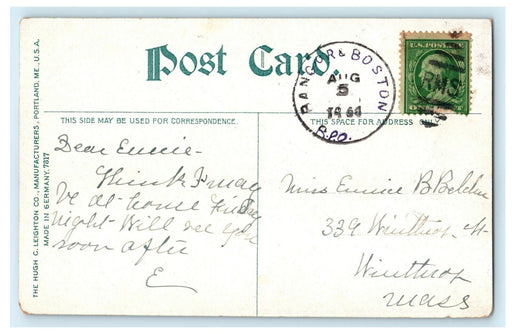 Post Card.
THIS SIDE MAY BE USED FOR CORRESPONDENCE.
THIS SPACE FOR ADDRESS
THE HUGH C. LEIGHTON CO., MANUFACTURERS, PORTLAND, ME., U.S.A.
MADE IN GERMANY.
BANGOR & BOSTON
AUG
5
R.P.O.
U.S. POSTAGE
RMS
Dear Eunice-
Think I may
be at home Friday
night- Will see you
soon after
E
Miss Eunice B Belcher
339 Winthrop St
Winthrop
Mass